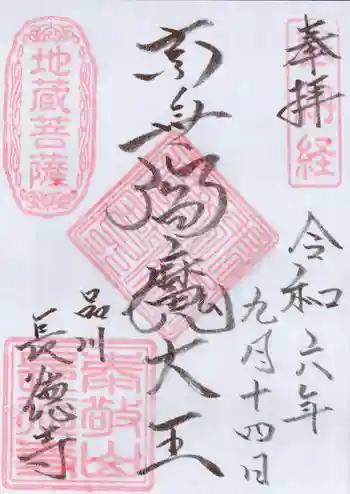 奉拝
納経
令和六年
九月十四日
南無焔魔大王
地蔵菩薩
品川
長徳寺